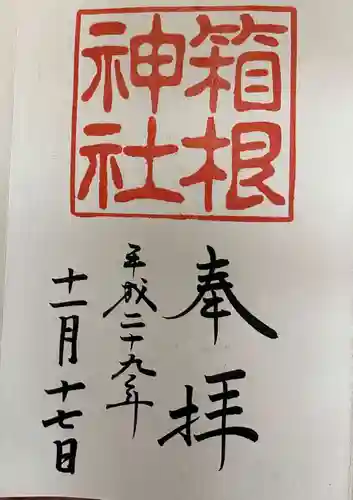 箱根
神社
奉拝
平成二十九年
十一月十七日